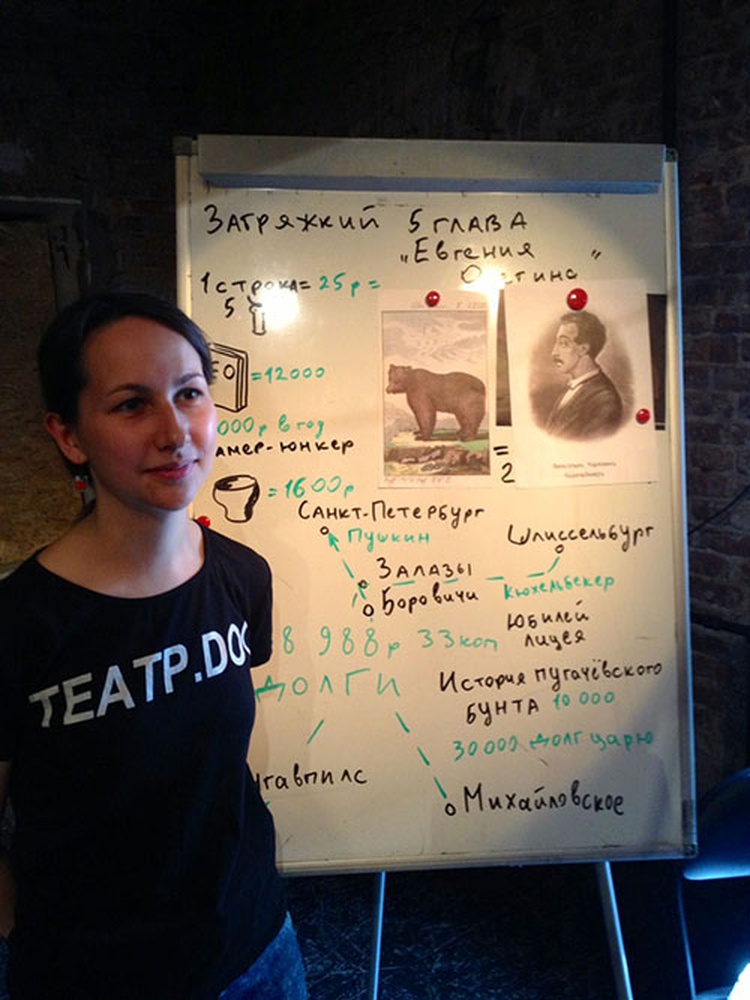 ЗАГРЯЖКИЙ 5 ГЛАВА
„ЕВГЕНИЯ
Онегина"
1 строка = 25 р =
5
= 12000
000 р в год
амер-юнкер
= 1600р
= 2
САНКТ-ПЕТЕРБУРГ
Пушкин
Шлиссельбург
ЗАЛАЗЫ
Кюхельбекер
Боровичи
ЮБИЛЕЙ
лицея
8 988р 33 коп
ДОЛГИ
История пугачёвского
БУНТА 10 000
30 000 долг царю
угавпилс
Михайловское
ТЕАТР.DOC